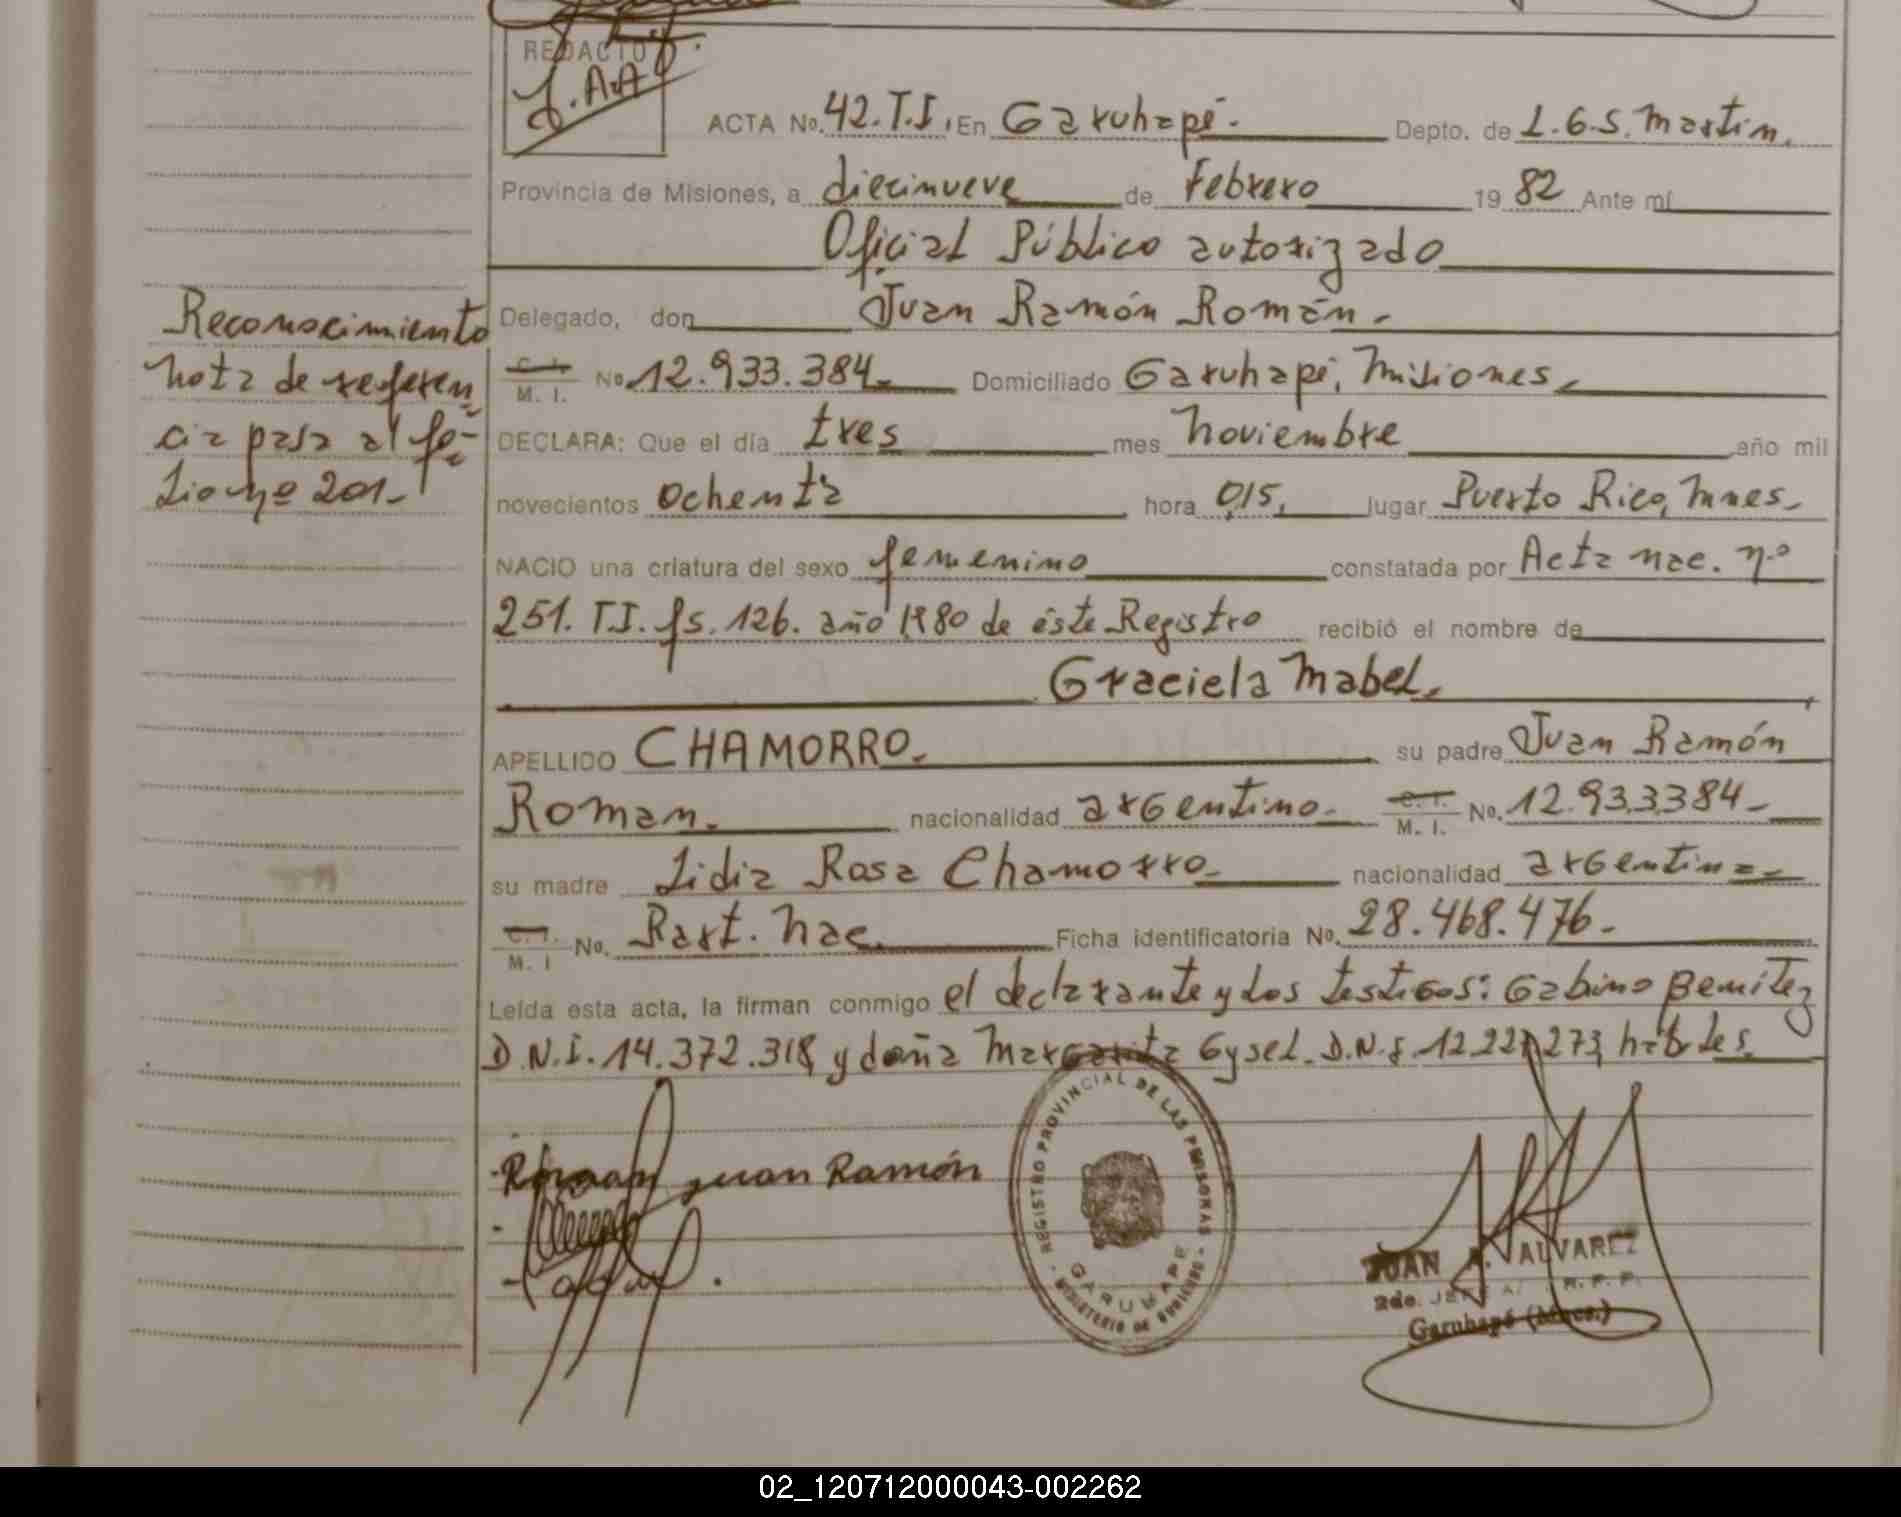 REDACTO
J.A.A
ACTA No. 42.T.I. En Garuhapé.- Depto. de L.G.S. Martin.
Provincia de Misiones, a diecinueve de Febrero 19 82 Ante mí
Oficial Público autorizado
Delegado, don Juan Ramón Román.-
C. I. M. I. No 12.933.384.- Domiciliado Garuhapé, Misiones.
DECLARA: Que el día tres mes Noviembre año mil
novecientos ochenta hora 0,15, lugar Puerto Rico, Mnes.
NACIO una criatura del sexo femenino constatada por Acta nac. nº
251. T.I. fs. 126. año 1980 de éste Registro recibió el nombre de
Graciela Mabel.
APELLIDO CHAMORRO. su padre Juan Ramón
Roman. nacionalidad argentino. C. I. M. I. No. 12.933.384-
su madre Lidia Rosa Chamorro. nacionalidad argentina
C. I. M. I No. Part. Nac. Ficha identificatoria No. 28.468.476.-
Leída esta acta, la firman conmigo el declarante y los testigos: Gabino Benitez
D.N.I. 14.372.318, y doña Margarita Gysel. D.N.I. 12.227.273, hábiles.
Reconocimiento
nota de referen
cia pasa al fo-
lio nº 201.-
Roman Juan Ramón
REGISTRO PROVINCIAL DE LAS PERSONAS
GARUHAPE
MINISTERIO DE GOBIERNO
JUAN A. ALVAREZ
2do. JEFE R.P.P.
Garuhapé (Mnes.)
02_120712000043-002262